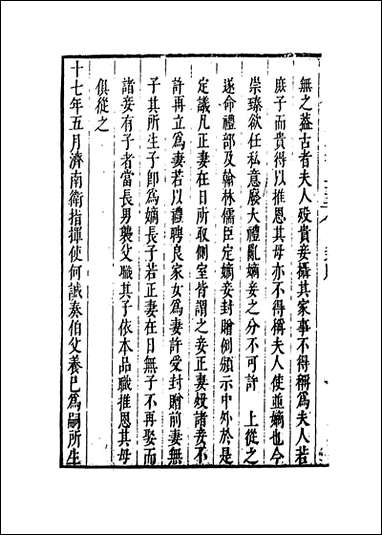 無之蓋古者夫人歿貴妾攝其家事不得稱爲夫人若
庶子而貴得以推恩其母亦不得稱夫人使並嫡也今
崇臻欲任私意廢大禮亂嫡妾之分不可許　上從之
遂命禮部及翰林儒臣定嫡妾封贈例頒示中外於是
定議凡正妻在日所取側室皆謂之妾正妻歿諸妾不
許再立爲妻若以禮聘良家女爲妻許受封贈前妻無
子其所生子卽爲嫡長子若正妻在日無子不再娶而
諸妾有子者當長男襲父職其子依本品職推恩其母
俱從之
十七年五月濟南衛指揮使何誠奏伯父養已爲嗣所生